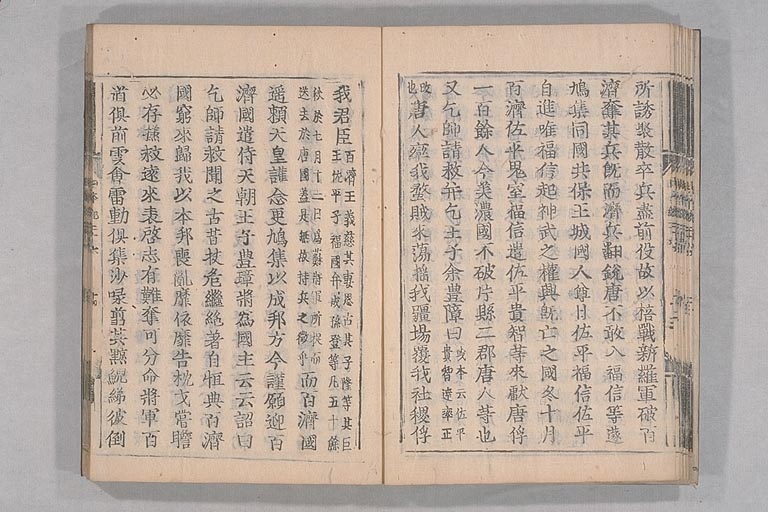 所誘聚散卒兵盡前役故以棓戰新羅軍破百
濟奪其兵既而濟兵翻鋭唐不敢入福信等遂
鳩集同國共保王城國人尊曰佐平福信佐平
自進唯福信起神武之權興既亡之國冬十月
百濟佐平鬼室福信遣佐平貴智等來獻唐俘
一百餘人今美濃國不破片縣二郡唐人等也
又乞師請救并乞王子余豐璋曰或本云佐平
貴智達率正
也唐人率我蝥賊來蕩搖我疆場覆我社稷俘
我君臣百濟王義慈其妻恩古其子隆等其臣
平千福國弁成孫登等凡五十餘
秋於七月十三日爲蘇將軍所捉而
送去於唐國蓋是無故持兵之徵乎而百濟國
遥賴天皇護念更鳩集以成邦方今謹願迎百
濟國遣侍天朝王子豐璋將爲國主云云詔曰
乞師請救聞之古昔扶危繼絶著自恒典百濟
國窮來歸我以本邦喪亂靡依靡告枕戈嘗膽
必存拯救遠來表啓志有難奪可分命將軍百
道俱前雲會雷動俱集沙㖨翦其鯨鯢紓彼倒